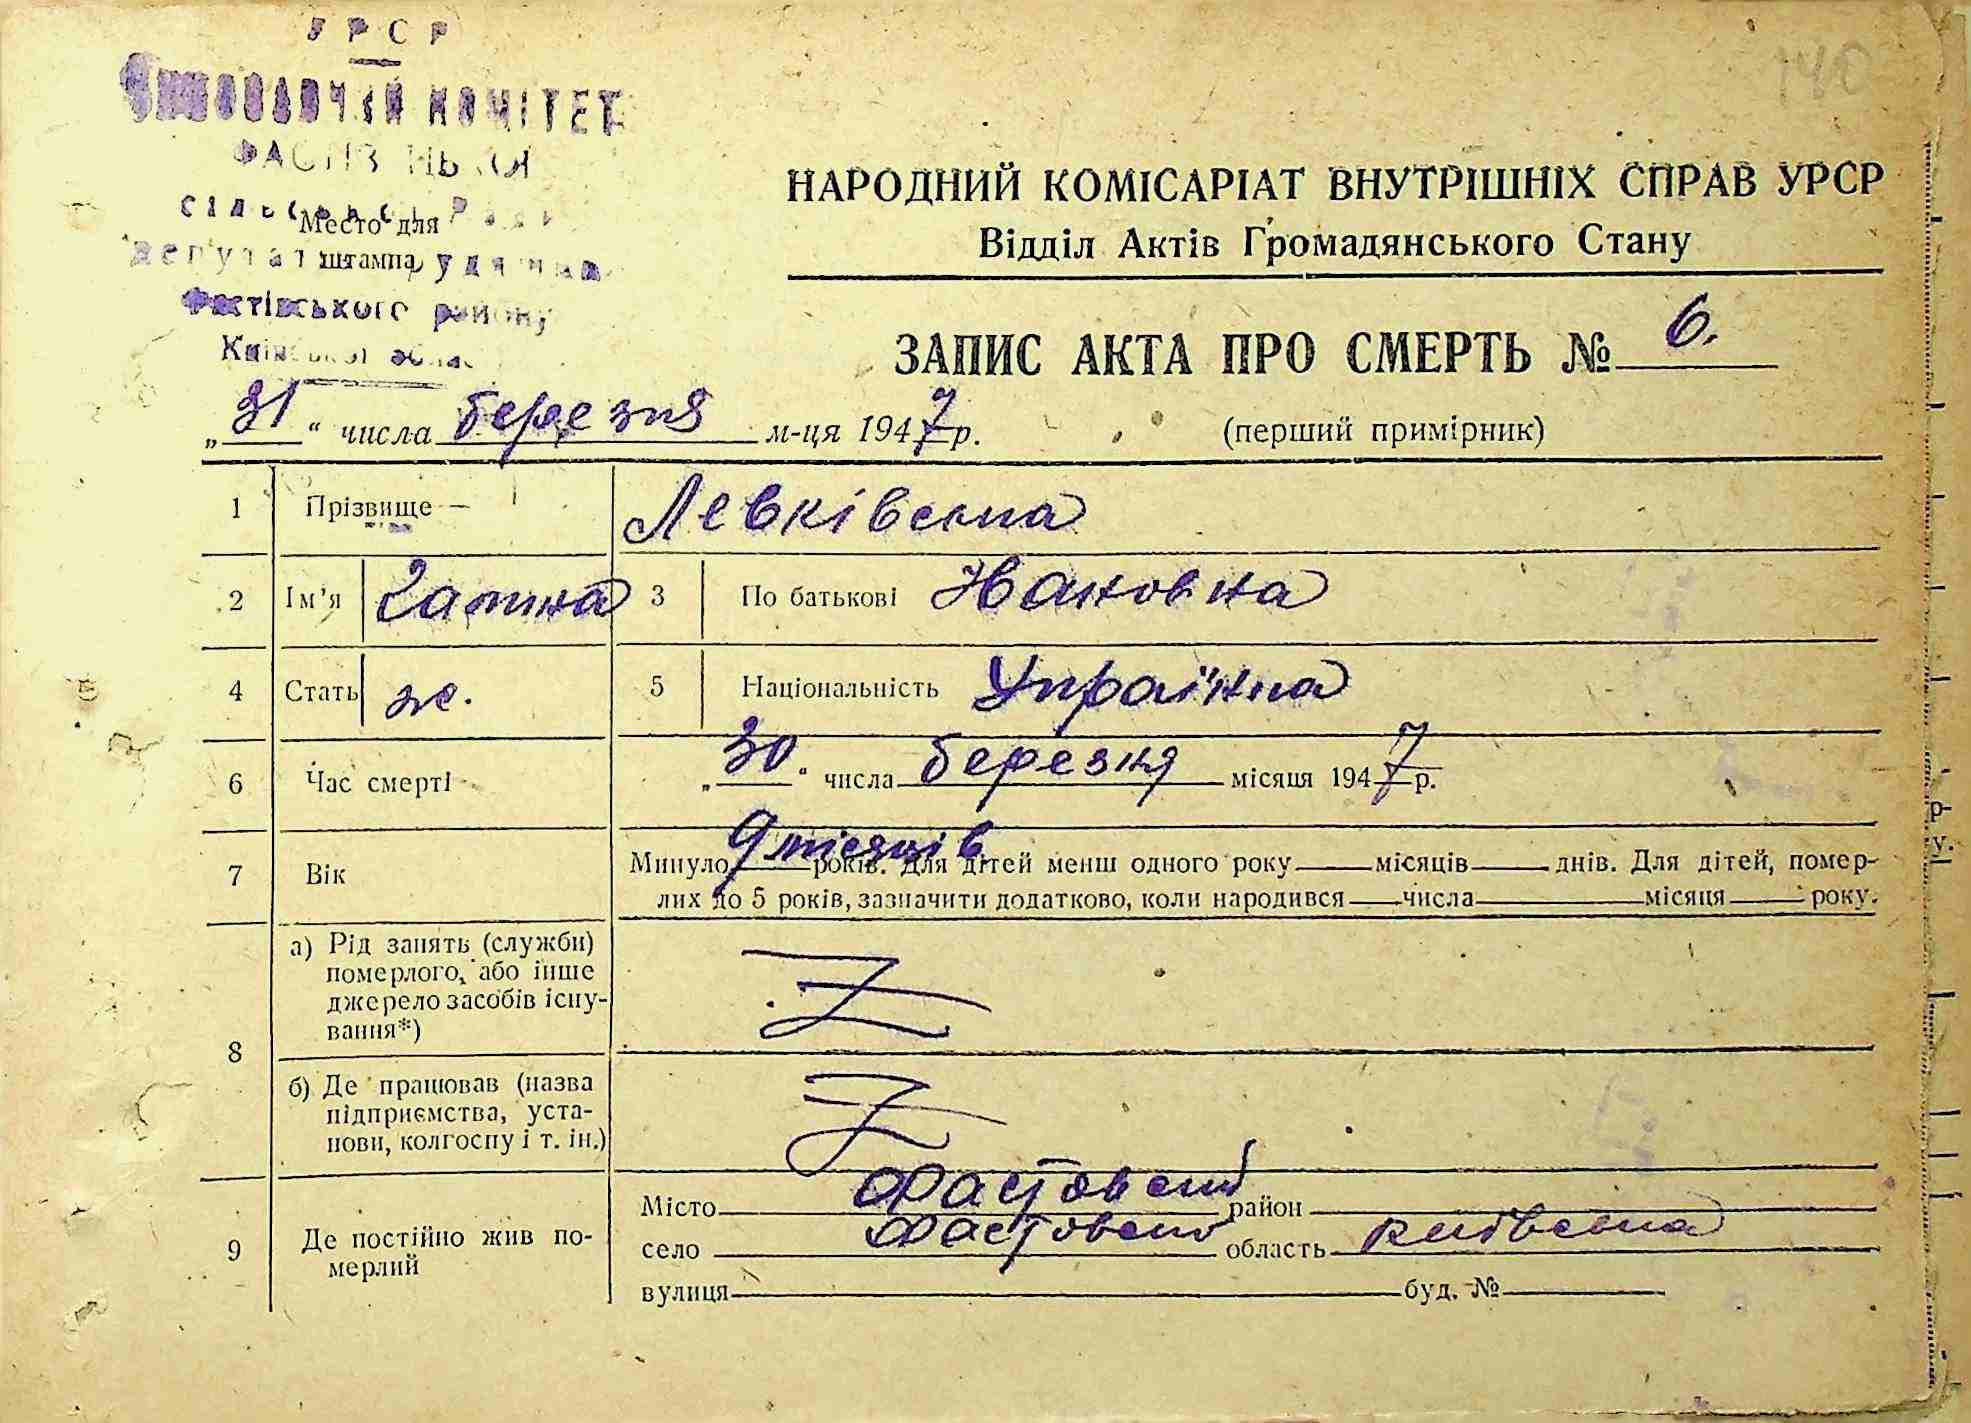 УРСР
ВИКОНАВЧИЙ КОМІТЕТ
ФАСТІВСЬКОЇ
сільської Ради
Место для
депутатів трудящих
штампа
Фастівського району
Київської облас
140
НАРОДНИЙ КОМІСАРІАТ ВНУТРІШНІХ СПРАВ УРСР
Відділ Актів Громадянського Стану
ЗАПИС АКТА ПРО СМЕРТЬ № 6.
„31“ числа березня м-ця 1947 р. (перший примірник)
1 Прізвище Левківська
2 Ім'я Галина 3 По батькові Івановна
4 Стать ж. 5 Національність Українка
6 Час смерті „30“ числа березня місяця 1947 р.
7 Вік Минуло 9 місяців років. Для дітей менш одного року місяців днів. Для дітей, помер-
лих до 5 років, зазначити додатково, коли народився числа місяця року.
8 а) Рід занять (служби)
померлого, або інше
джерело засобів існу-
вання*)
б) Де працював (назва
підприємства, уста-
нови, колгоспу і т. ін.)
9 Де постійно жив по-
мерлий
Місто Фастовский район
село область київська
вулиця буд. №